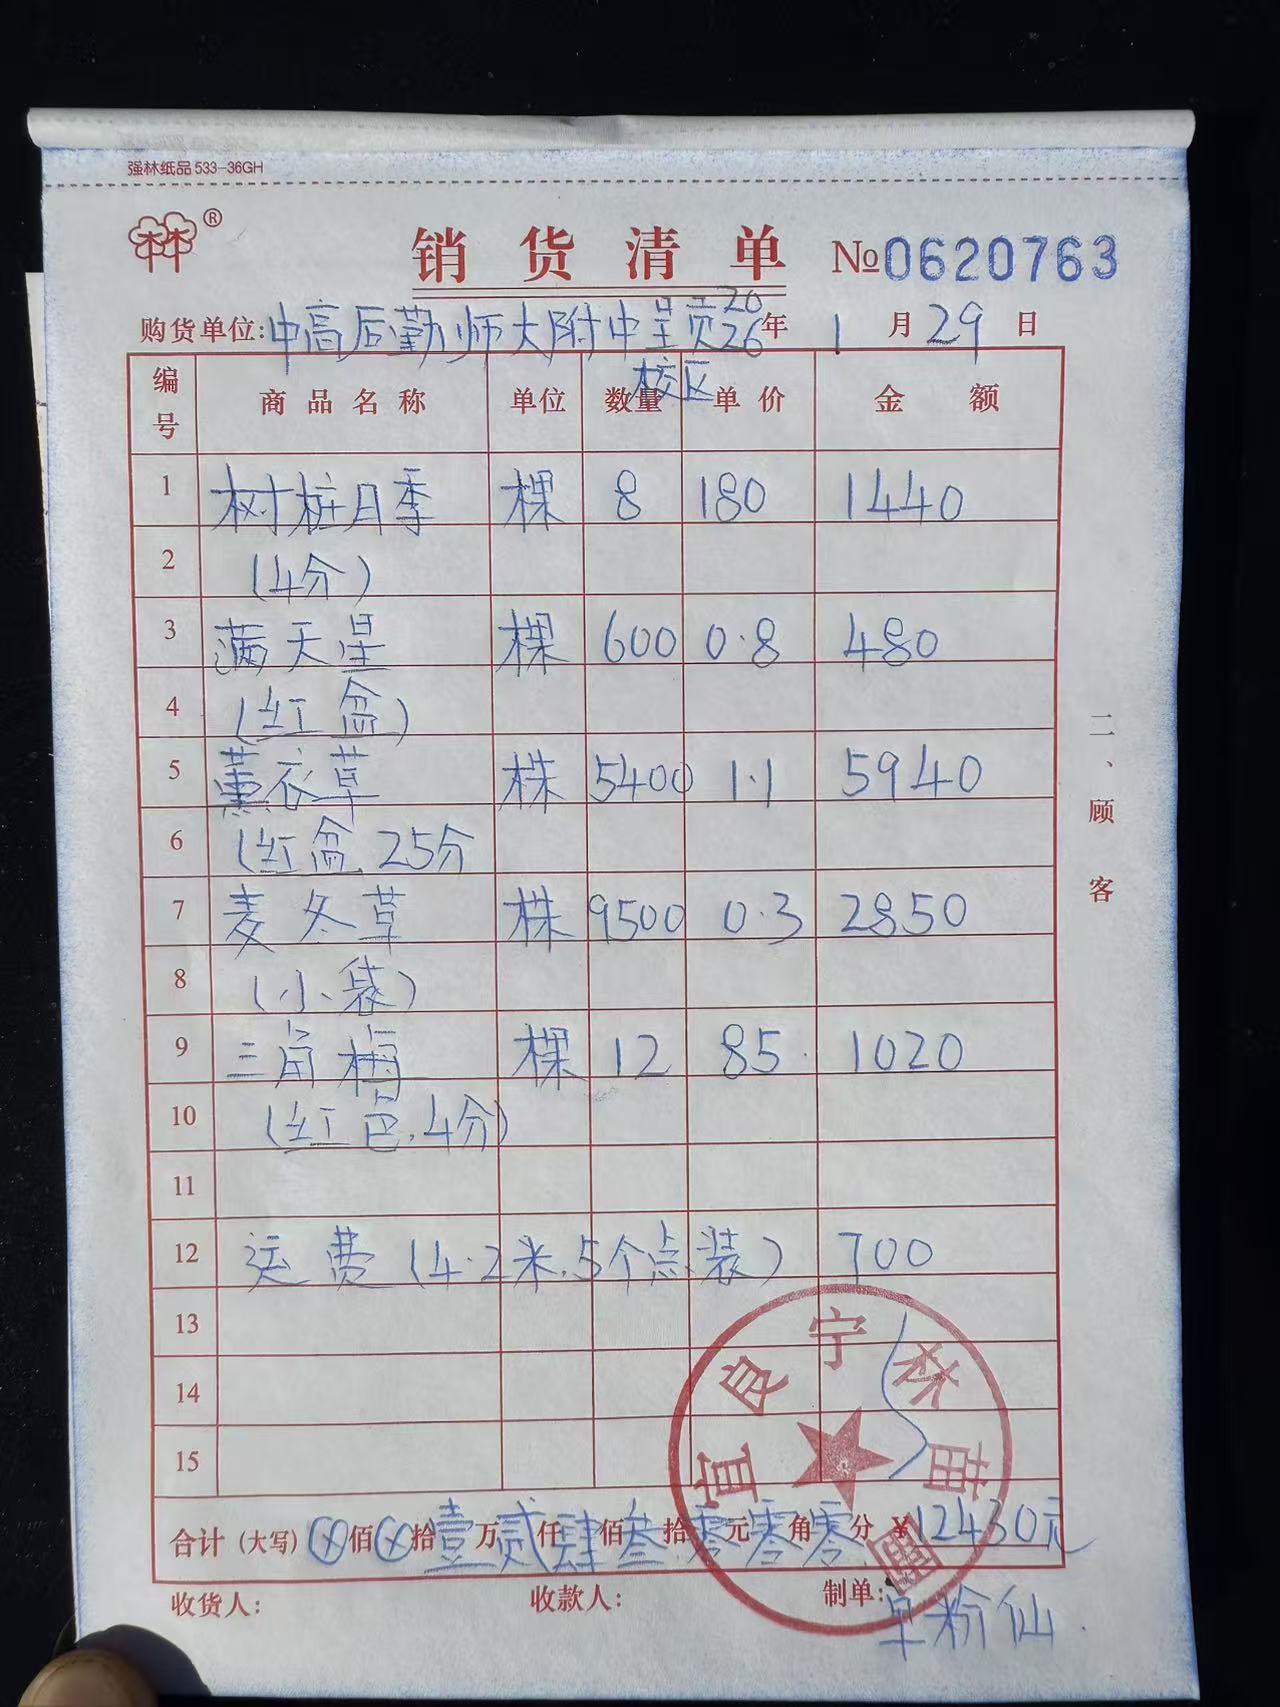 强林纸品 533-36GH
林林®
销货清单 №0620763
购货单位:中高后勤师大附中呈贡校区 2026年1月29日
编号 商品名称 单位 数量 单价 金额
1 树桩月季 棵 8 180 1440
2 (4分)
3 满天星 棵 600 0.8 480
4 (红盆)
5 薰衣草 株 5400 1.1 5940
6 (红盆 25分
7 麦冬草 株 9500 0.3 2850
8 (小袋)
9 三角梅 棵 12 85 1020
10 (红色,4分)
11
12 运费(4.2米,5个点装) 700
13
14
15
合计(大写)⊗佰⊗拾壹万贰仟肆佰叁拾零元零角零分 ¥12430元
收货人: 收款人: 制单:单粉仙
二、顾客
宜良宁 苗圃